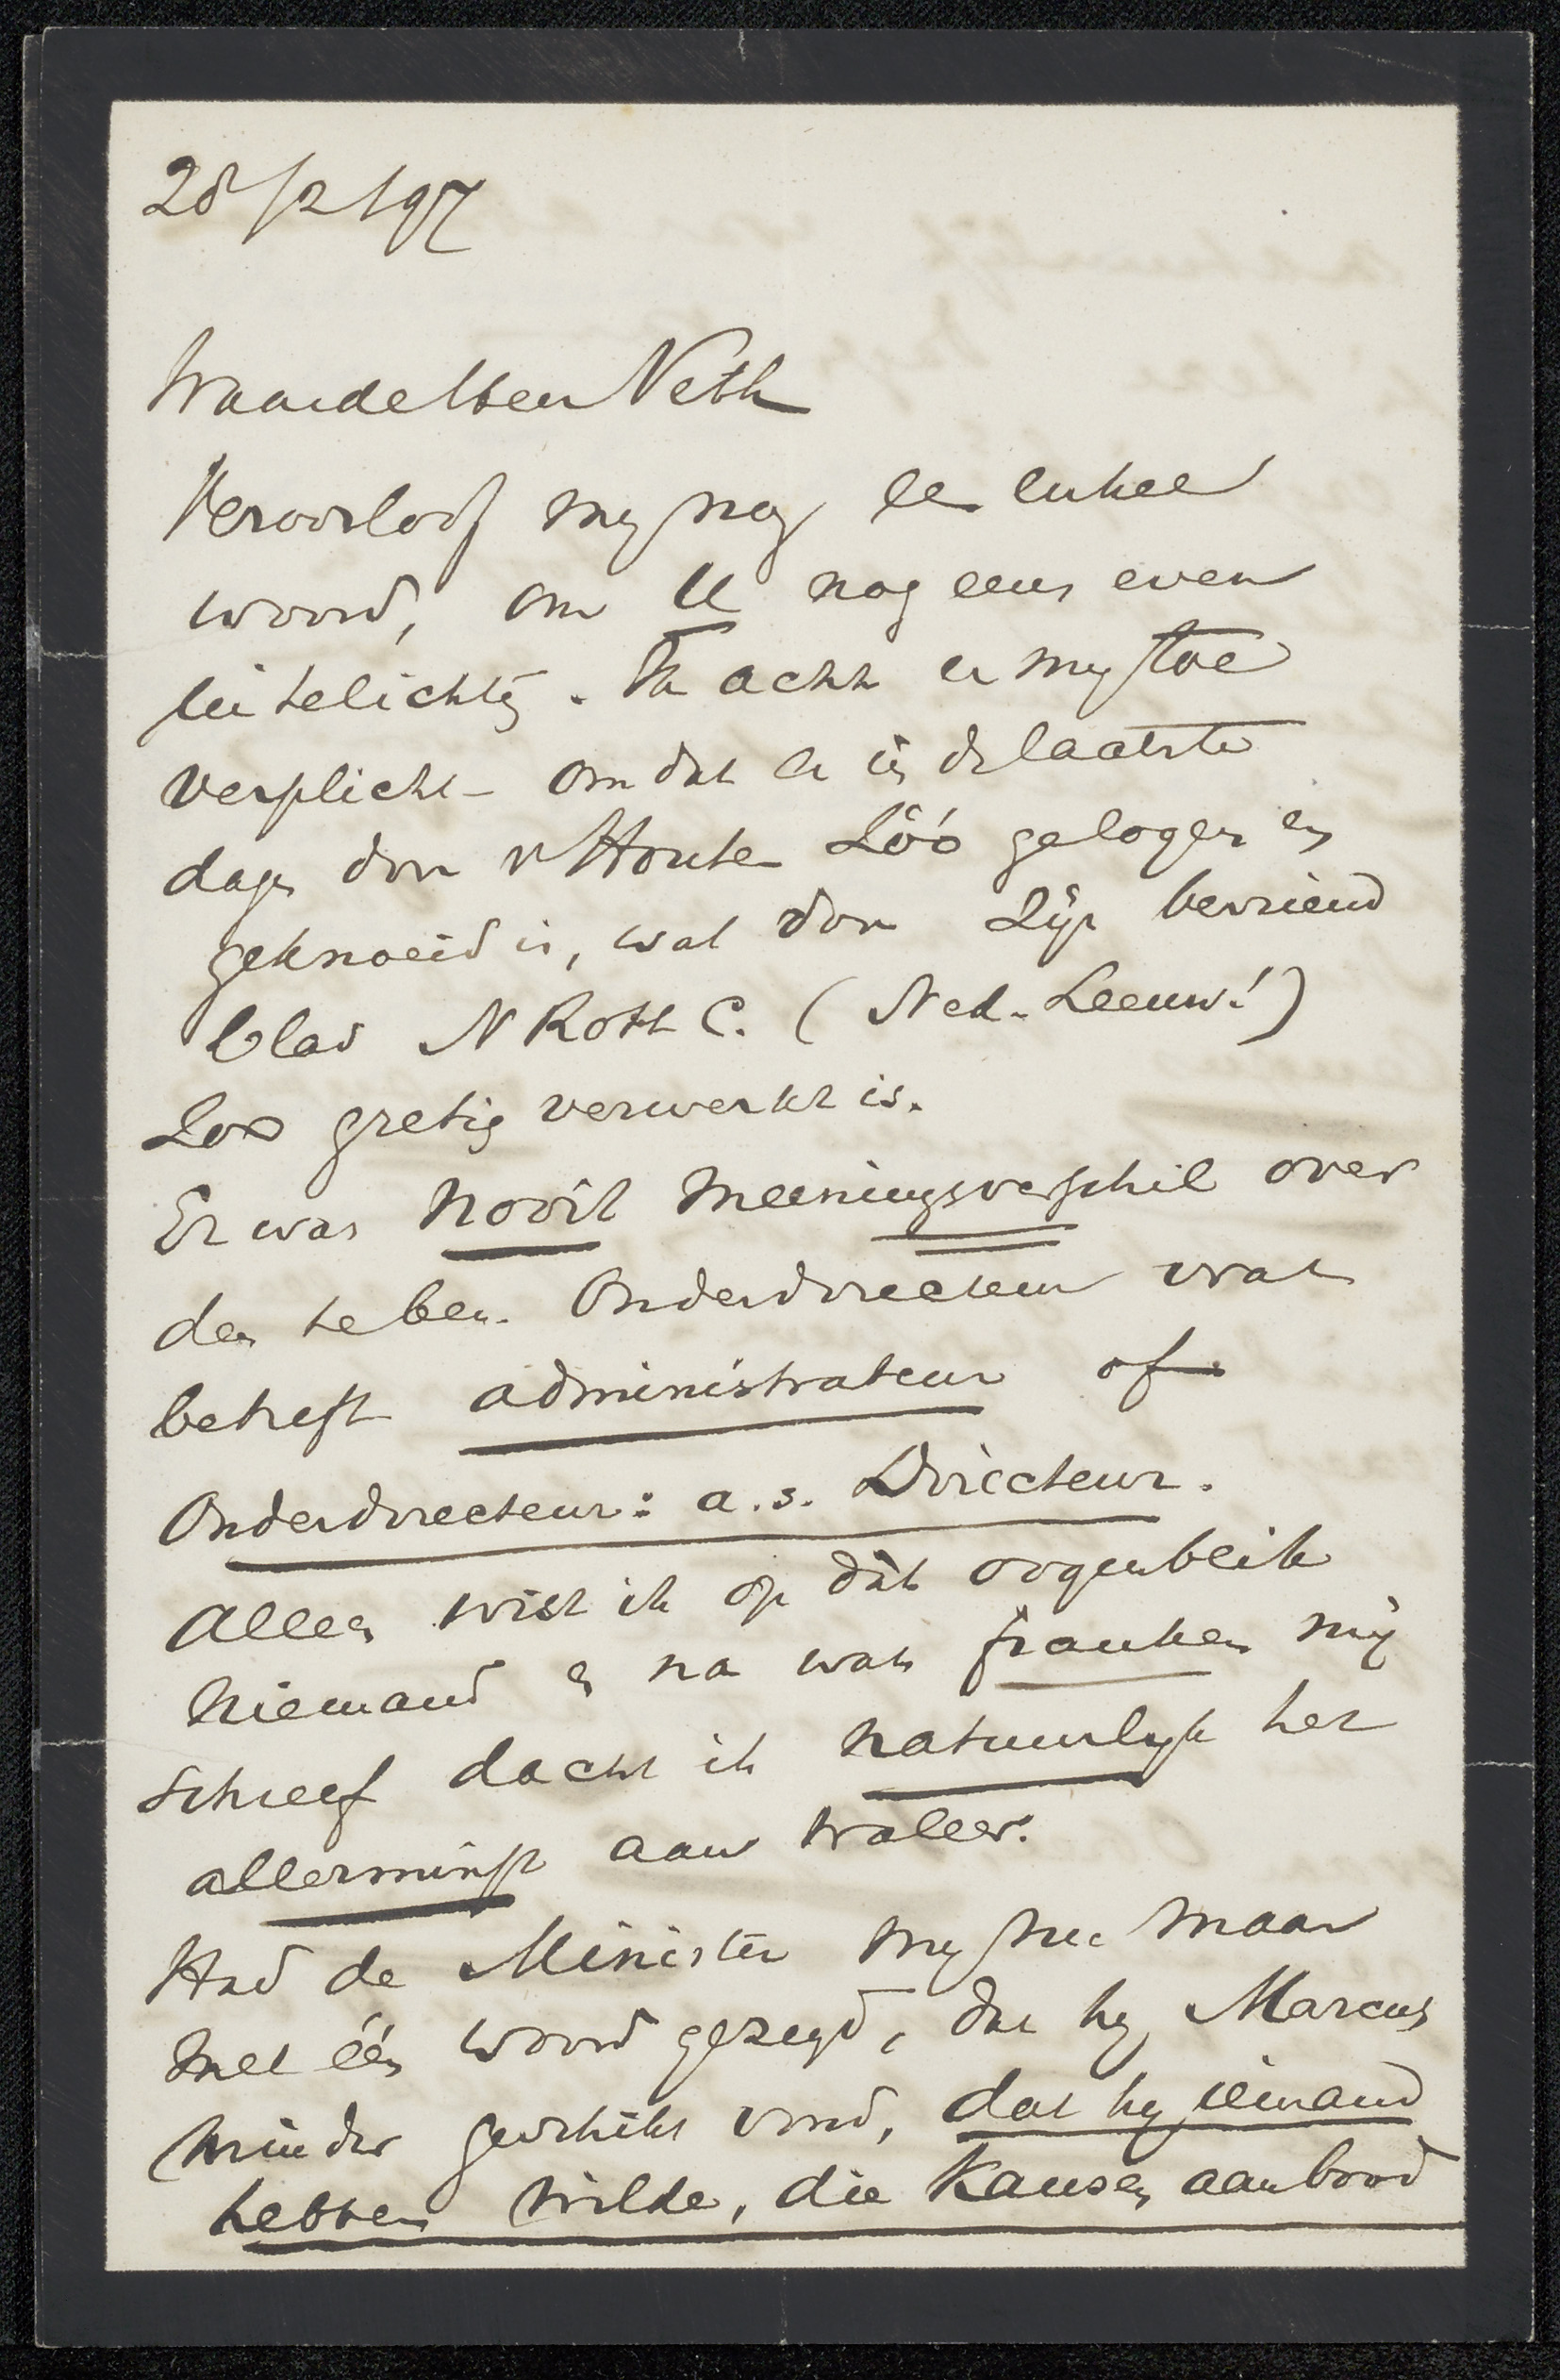 28/2/97
Waarde Heer Veth
Veroorloof my nog een enkel
woord, om U nog eens even
in te lichten. Ik acht er my toe
verplicht omdat er in de laatste
dagen door v Houten zóó gelogen en
geknoeid is, wat door Zijn bevriend
blad N Rott C. (Ned. Leeuw!)
zoo gretig verwerkt is.
Er was nooit meeningsverschil over
den te ben. Onderdirecteur wat
betreft administrateur of
Onderdirecteur: a.s. Directeur.
Alleen wist ik op dàt oogenblik
niemand en na wat franken mij
schreef dacht ik natuurlyk het
allerminst aan Waller.
Had de Minister my nu maar
met één woord gezegd, dat hy Marcus
minder geschikt vond, dat hy iemand
hebben wilde, die Kansen aanbood